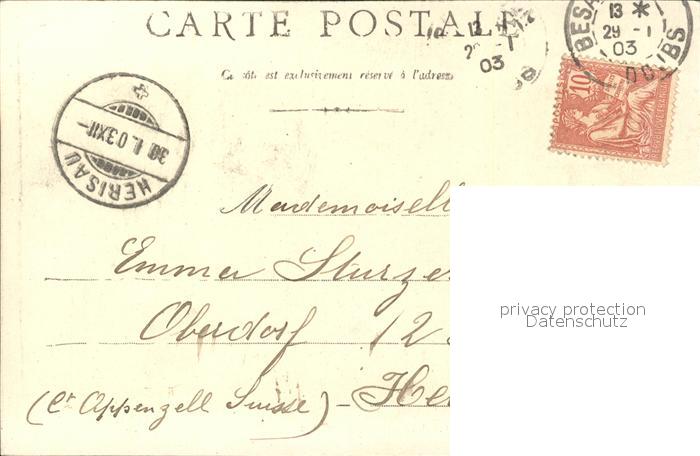 CARTE POSTALE
13 *
29 -1
03
BESA
13 *
29 -1
03
DOUBS
Ce côté est exclusivement réservé à l'adresse
10
HERISAU
30.I.03.XII-
Mademoisell
Emma Sturze
privacy protection
Datenschutz
Oberdorf 12
(Ct Appenzell Suisse) - He